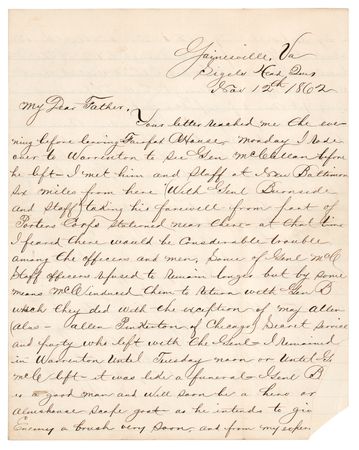 Gainesville, Va
Sigels Head Qurs
Nov 12th 1862
My Dear Father,
Your letter reached me the eve-
ning before leaving Fairfax C House. Monday I rode
over to Warrenton to see Gen McClellan before
he left - I met him and Staff at New Baltimore
six miles from here (with Genl Burnside
and Staff) taking his farewell from part of
Porters Corps stationed near there - at that time
I feared there would be considerable trouble
among the officers and men, some of Genl McC
Staff officers refused to remain longer but by some
means McC induced them to return with Gen B
which they did with the exception of Maj Allen
(alas - Allen Pinkerton of Chicago) Secret Service
and party who left with the Genl - I remained
in Warrenton until Tuesday noon or until G
McC left - it was like a funeral - Genl B
is a good man and will soon be a hero or
Almshouse scape goat as he intends to giv
Enemy a brush very soon, and from my